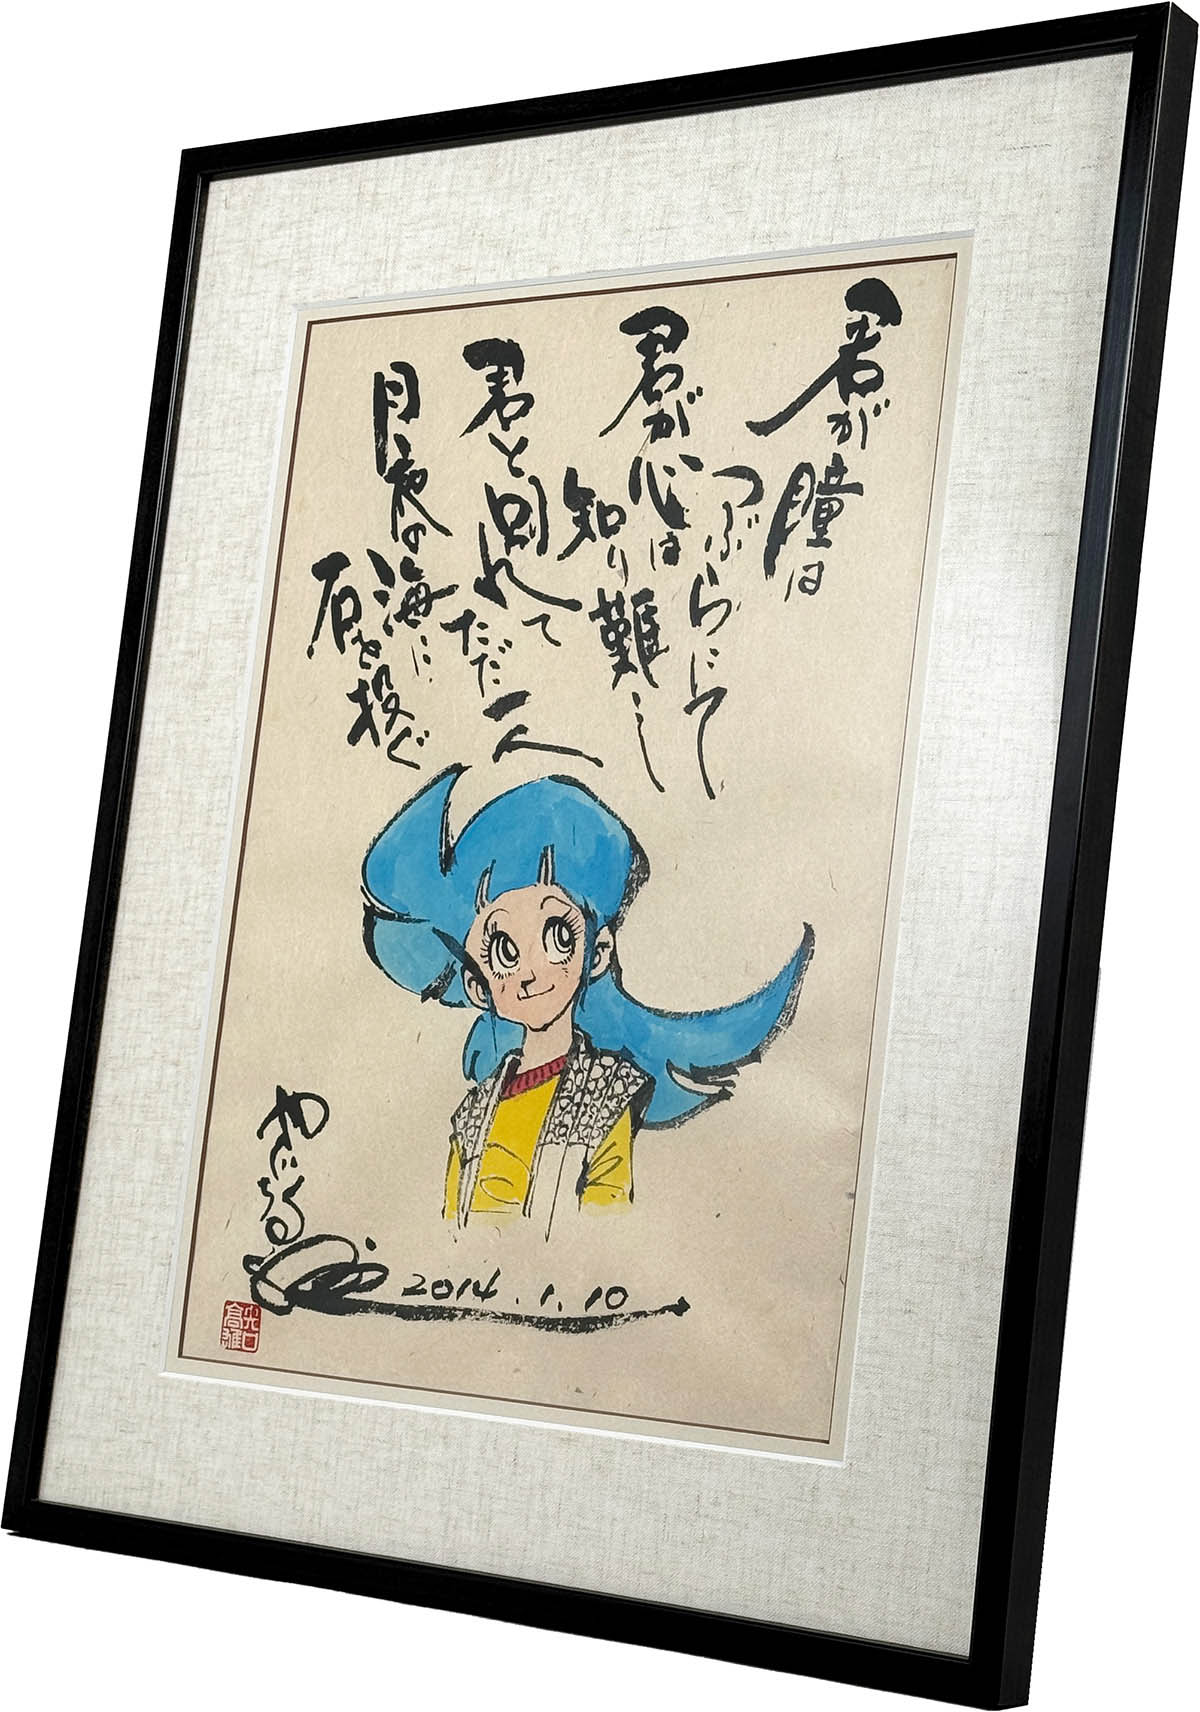 君が瞳は
つぶらにて
君が心は
知り難し
君と別れて
ただ一人
月夜の海に
石を投ぐ
2014.1.10